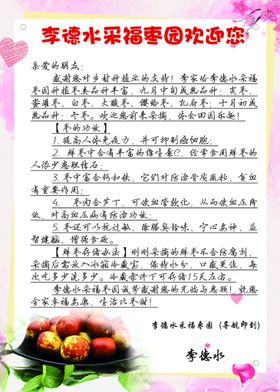 李德水采福枣园欢迎您
亲爱的朋友：
感谢您对乡村种植业的支持！李家俗李德水采福
枣园种植枣类品种丰富，九月中旬成熟品种：
安猫枣、白枣、大酸枣、
熟品种：冬枣。欢迎您前来采摘，体会田园乐趣！
【枣的功效】
1.提高人体免疫力，并可抑制癌细胞；
2.鲜枣中含有丰富的维生素C，经常食用鲜枣的
人很少患胆结石；
3.枣中富含钙和铁，它们对防治骨质疏松、贫血
有重要作用；
4.枣肉含芦丁，可使血管软化，从而使血压降
低，对高血压病有防治功效；
5.枣还可以抗过敏、除腥臭怪味、宁心安神、益
智健脑、增强食欲。
【鲜枣存储办法】刚刚采摘的鲜枣不含防腐剂，
采摘后需放入冰箱冷藏室，保持水分，口感更佳，每
次吃多少洗多少。冷藏条件下可存储15天左右。
李德水采福枣园诚挚感谢您的光临与惠顾！祝您
全家幸福安康，生活比枣甜！
李德水采福枣园（导航即到）
李德水